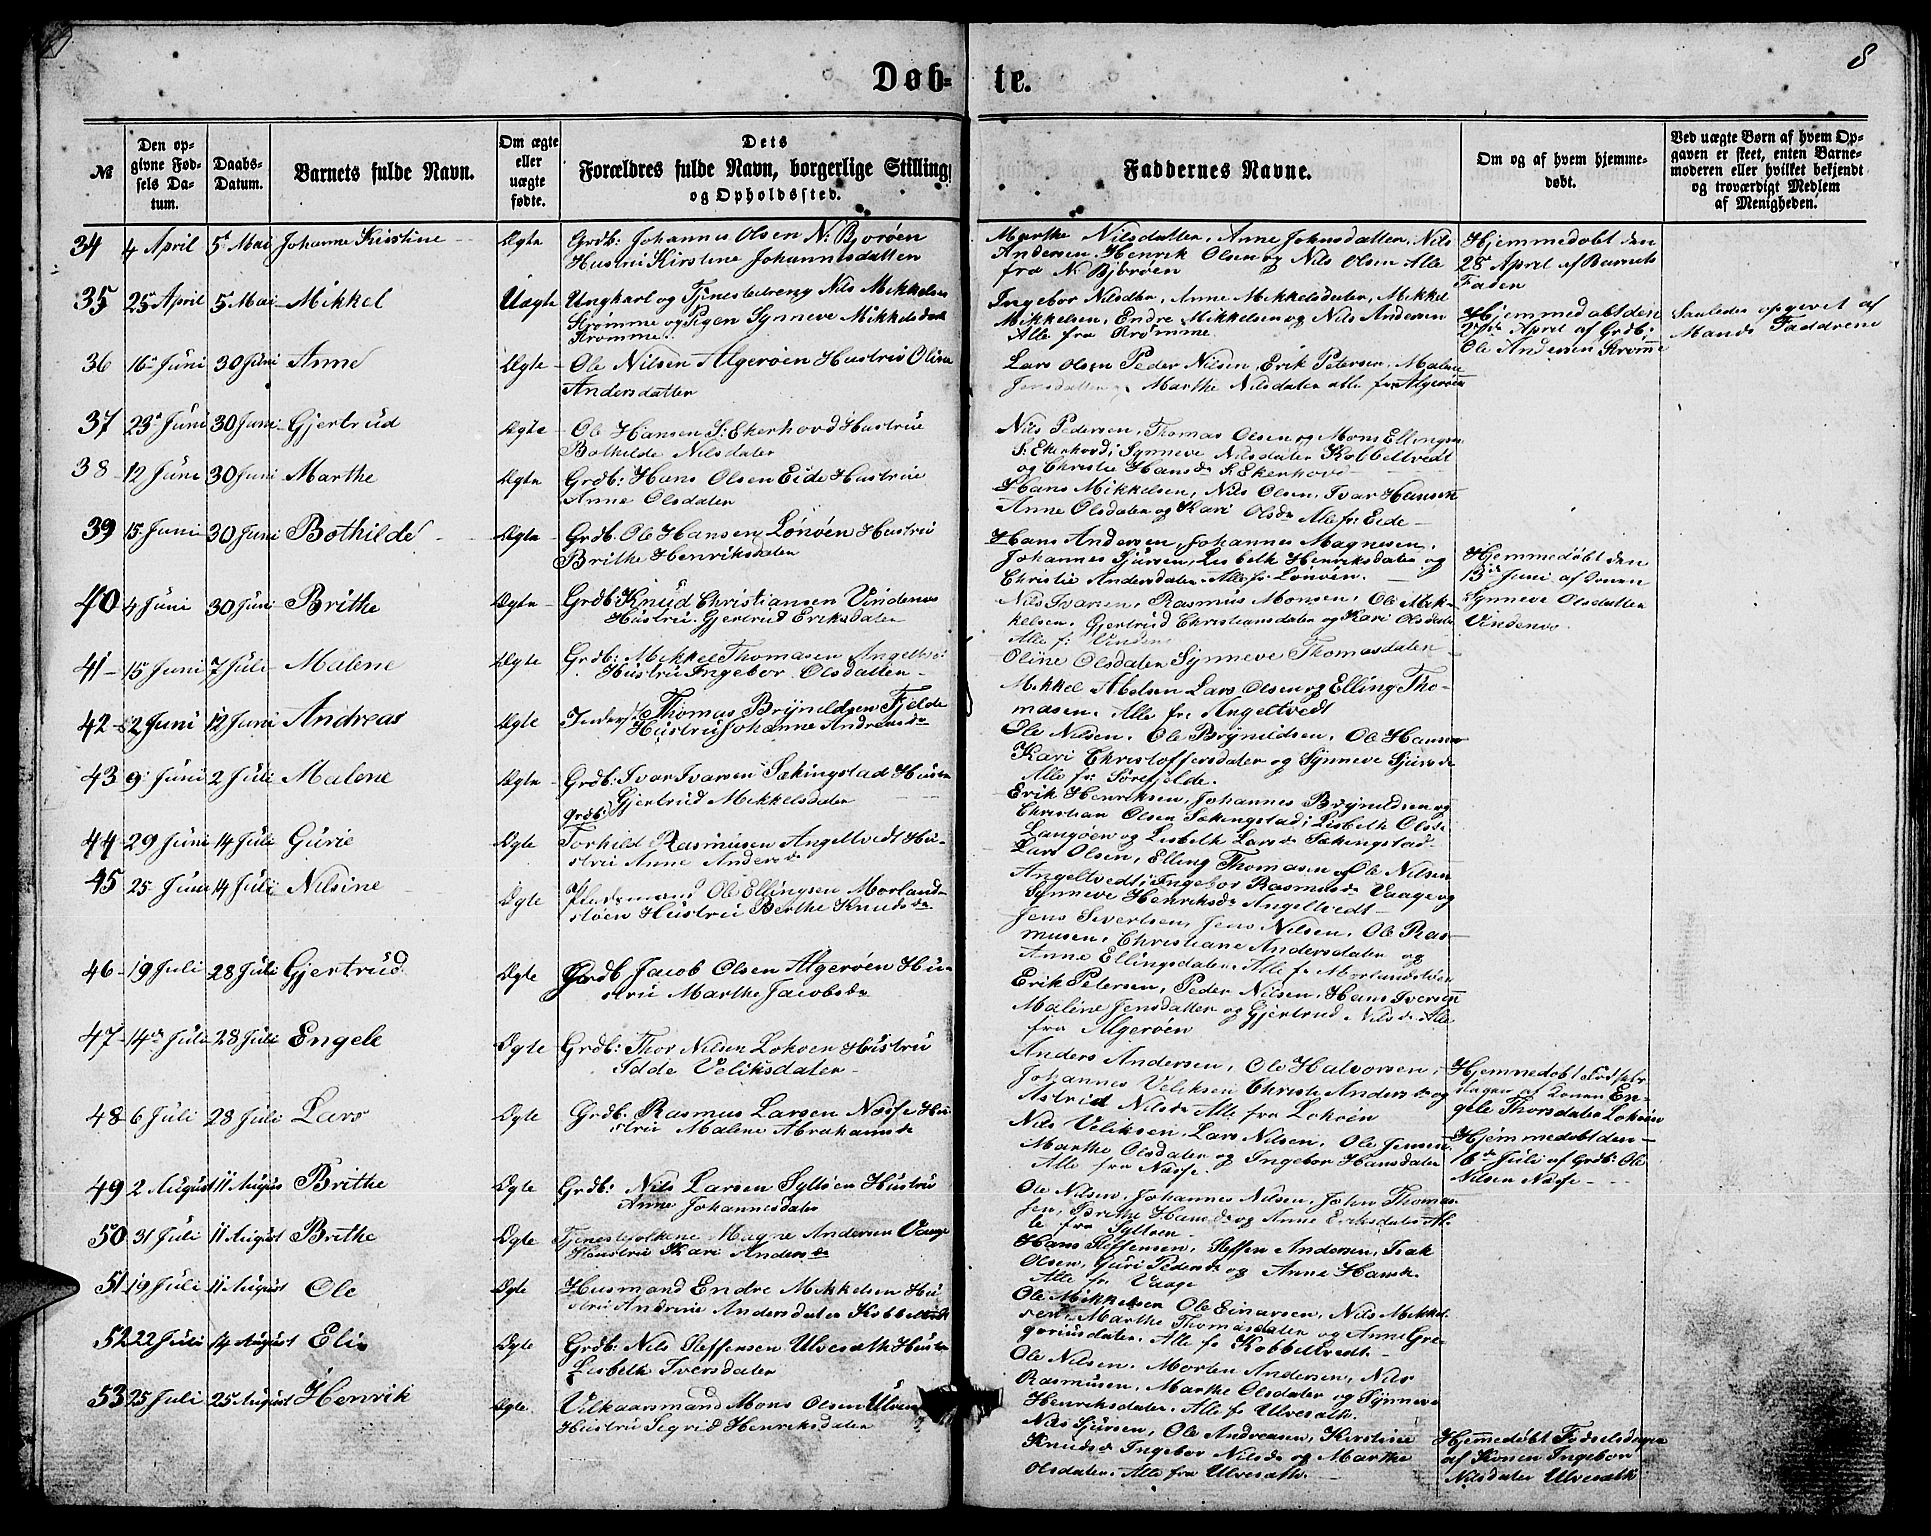 8
Døb-
te.
№
Den op-
givne Fød-
sels Da-
tum.
Daabs-
Datum.
Barnets fulde Navn.
Om ægte
eller
uægte
fødte.
Dets
Forældres fulde Navn, borgerlige Stilling
og Opholdssted.
Faddernes Navne.
Om og af hvem hjemme-
døbt.
Ved uægte Børn af hvem Op-
gaven er skeet, enten Barne-
moderen eller hvilket bekjendt
og troværdigt Medlem
af Menigheden.
34 4 April 5 Mai Johanne Kirstine Ægte Grdb: Johannes Olsen N: Bjorøen
Hustru Kirstine Johannesdatter
Marthe Nilsdatter, Anne Johnsdatter, Nils
Andersen, Henrik Olsen og Nils Olsen Alle
fra N: Bjorøen
Hjemmedøbt den
28 April af Barnets
Fader
35 25 April 5 Mai Mikkel Uægte Ungkarl og Tjenestedreng Nils Mikkelsen
Strømme og Pigen Synneve Mikkelsdatt
Strømme.
Ingebor Nilsdtr, Anne Mikkelsdater, Mikkel
Mikkelsen, Endre Mikkelsen og Nils Andersen
Alle fra Strømme
Hjemmedøbt den
27de April af Grdb:
Ole Andersen Strømme
Saaledes opgivet af
Mands Fadderne
36 16 Juni 30 Juni Anne Ægte Ole Nilsen Algerøen Hustru Oline
Andersdatter
Lars Olsen Peder Nilsen, Erik Petersen, Malene
Jensdatter og Marthe Nilsdater alle fra Algerøen
37 23 Juni 30 Juni Gjertrud Ægte Ole Hansen S: Ekerhovd Hustrue
Bothilde Nilsdater
Nils Pedersen, Thomas Olsen og Mons Ellingsen
S: Ekerhovd; Synneve Nilsdater Kobbeltvedt
og Christie Hansdr S: Ekerhovd
38 12 Juni 30 Juni Marthe Ægte Grdb: Hans Olsen Eide Hustrue
Anne Olsdater
Hans Mikkelsen, Nils Olsen, Ivar Hansen
Anne Olsdater og Kari Olsdr Alle fr Eide
39 15 Juni 30 Juni Bothilde Ægte Grdb. Ole Hansen Lønøen Hustru
Brithe Henriksdater
Hans Andersen, Johannes Magnesen,
Johannes Sjursen, Lisbeth Henriksdater og
Christie Andersdater. Alle fr Lønøen.
Hjemmedøbt den
13de Juni af Konen
Synneve Olsdatter
Vindenes
40 4 Juni 30 Juni Brithe Ægte Grdb: Knud Christiansen Vindenes
Hustru. Gjertrud Eriksdater
Nils Ivarsen, Rasmus Monsen, Ole Mik-
kelsen. Gjertrud Christiansdater og Kari Olsdater
Alle f: Vinden
41 15 Juni 7 Juli Malene Ægte Grdb: Mikkel Thomasen Angeltvedt
Hustru Ingebor Olsdatter
Oline Olsdater Synneve Thomasdater
Mikkel Abelsen Lars Olsen og Elling Tho-
masen. Alle fr Angeltvedt
42 2 Juni 12 Juni Andreas Ægte Thomas Brynildsen Fjelde
Hustru Johanne Andreasdr
Ole Nilsen. Ole Brynildsen, Ole Hansen
Kari Christoffersdater og Synneve Sjursdr
Alle fr Sørefjelde.
43 9 Juni 2 Juli Malene Ægte Grdb: Ivar Ivarsen Sækingstad Hustru
Gjertrud Mikkelsdater
Erik Henriksen, Johannes Brynildsen og
Christian Olsen Sækingstad; Lisbeth Olsdr
Langøen og Lisbeth Larsdr Sækingstad
44 29 Juni 14 Juli Gurie Ægte Grdb: Torkild Rasmusen Angeltvedt Hu-
stru Anne Andersdr
Lars Olsen, Elling Thomasen og Ole Nilsen
Angeltvedt; Ingebor Rasmusdr Vaage og
Synneve Henriksdr Angeltvedt
45 25 Juni 14 Juli Nilsine Ægte Pladsmand Ole Ellingsen Morland-
støen Hustru Berthe Knudsdr
Jens Sivertsen, Jens Nilsen, Ole Ras-
musen, Christiane Andersdater og
Anne Ellingsdater. Alle fr Morlandstøen
46 19 Juli 28 Juli Gjertrud Ægte Grdb. Jacob Olsen Algerøen Hu-
stru Marthe Jacobsdr
Erik Petersen, Peder Nilsen, Hans Iversen
Malene Jensdatter og Gjertrud Nilsdr Alle
fra Algerøen
47 14de Juli 28 Juli Engele Ægte Grdb: Thor Nilsen Lokøen Hustru
Idde Veliksdater
Anders Andersen, Ole Halvorsen,
Johannes Veliksen Christi Andersdr og
Astrid Nilsdr Alle fra Lokøen
Hjemmedøbt Fødsels-
dagen af Konen En-
gele Thorsdater Lokøen
48 6 Juli 28 Juli Lars Ægte Grdb: Rasmus Larsen Næsse Hu-
stru Malene Abrahamsdr
Nils Veliksen, Lars Nilsen, Ole Jensen
Marthe Olsdater og Ingebor Hansdater
Alle fra Næsse.
Hjemmedøbt den
16de Juli af Grdb: Ole
Nilsen Næsse
49 2 August 11 Augus Brithe Ægte Grdb: Nils Larsen Syltøen Hustru
Anne Johannesdater
Ole Nilsen, Johannes Nilsen, John Thomas
sen, Brithe Hansdr og Anne Eriksdater Al-
le fra Syltøen
50 31 Juli 11 August Brithe Ægte Tjenestefolkene Magne Andersen Vaage
Hustru Kari Andersdr
Hans Steffensen, Steffen Andersen, Isak
Olsen, Guri Pedersdr og Anne Hansdr.
Alle fr Vaage
51 19 Juli 11 August Ole Ægte Husmand Endre Mikkelsen Hu-
stru Andrine Andersdater Kobbeltvedt
Ole Mikkelsen Ole Einarsen, Nils Mikkel
sen, Marthe Thomasdater og Anne Gre-
goriusdater. Alle fr Kobbeltvedt.
52 22 Juli 14 August Eli Ægte Grdb: Nils Steffensen Ulvesæth Hustru
Lisbeth Iversdater
Ole Nilsen. Morten Andersen, Nils
Rasmusen, Marthe Olsdater og Synneve
Henriksdater. Alle fr Ulvesæth.
53 25 Juli 25 August Henrik Ægte Vilkaarmand Mons Olsen Ulve
Hustru Sigrid Henriksdater
Nils Sjursen, Ole Andreasen, Kirstine
Knudsdr Ingebor Nilsdr og Marthe
Olsdater. Alle fra Ulvesæth.
Hjemmedøbt Fødselsdagen
af Konen Ingebor
Nilsdater Ulvesæth